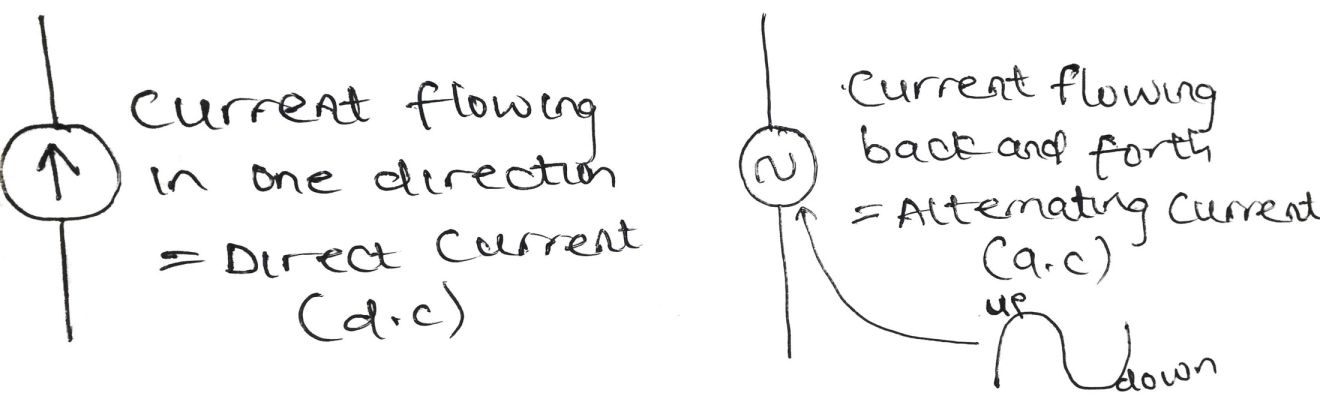 Current flowing
in one direction
= Direct Current
(d.c)
Current flowing
back and forth
= Alternating Current
(a.c)
up
down